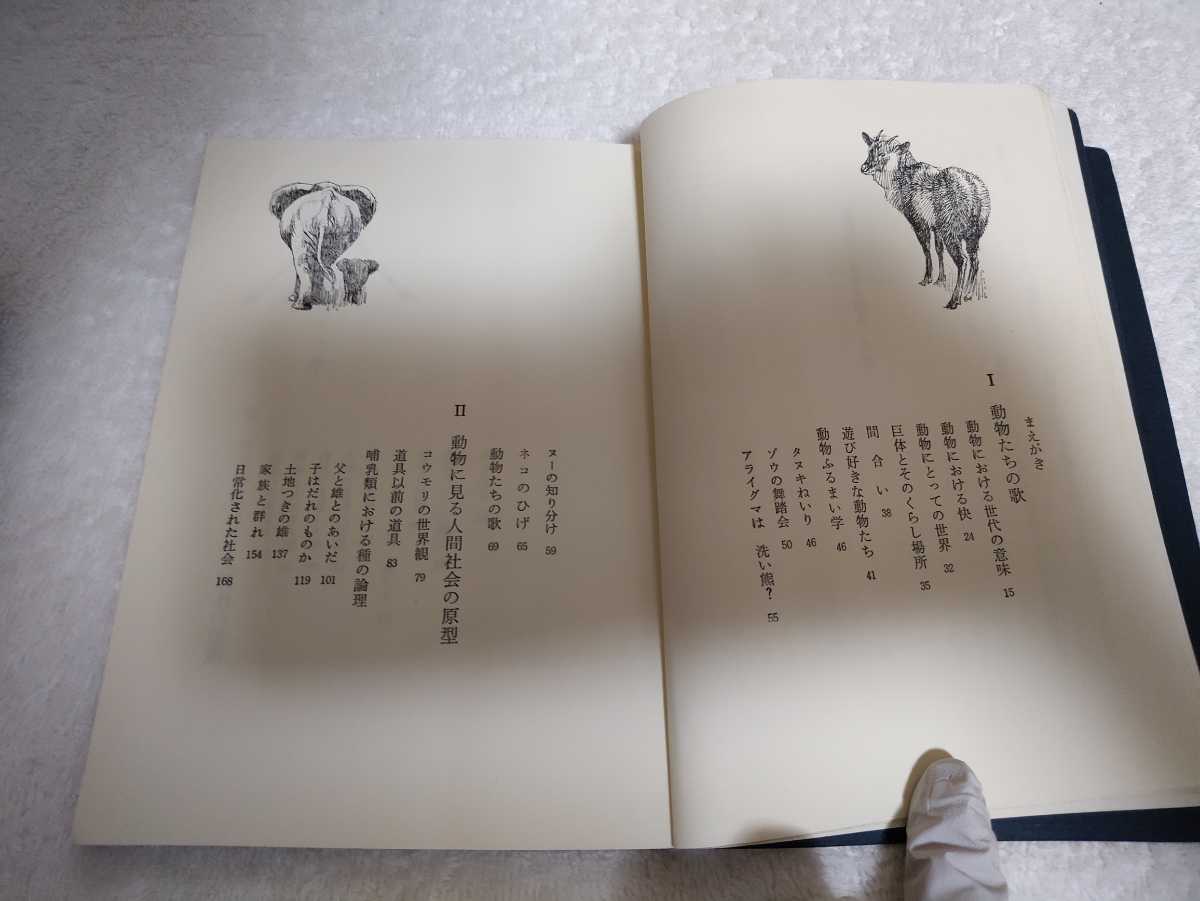 まえがき
Ⅰ 動物たちの歌
動物における世代の意味 15
動物における快 24
動物にとっての世界 32
巨体とそのくらし場所 35
間合い 38
遊び好きな動物たち 41
動物ふるまい学 46
タヌキねいり 46
ゾウの舞踏会 50
アライグマは 洗い熊？ 55
ヌーの知り分け 59
ネコのひげ 65
動物たちの歌 69
Ⅱ 動物に見る人間社会の原型
コウモリの世界観 79
道具以前の道具 83
哺乳類における種の論理
父と雄とのあいだ 101
子はだれのものか 119
土地つきの雄 137
家族と群れ 154
日常化された社会 168